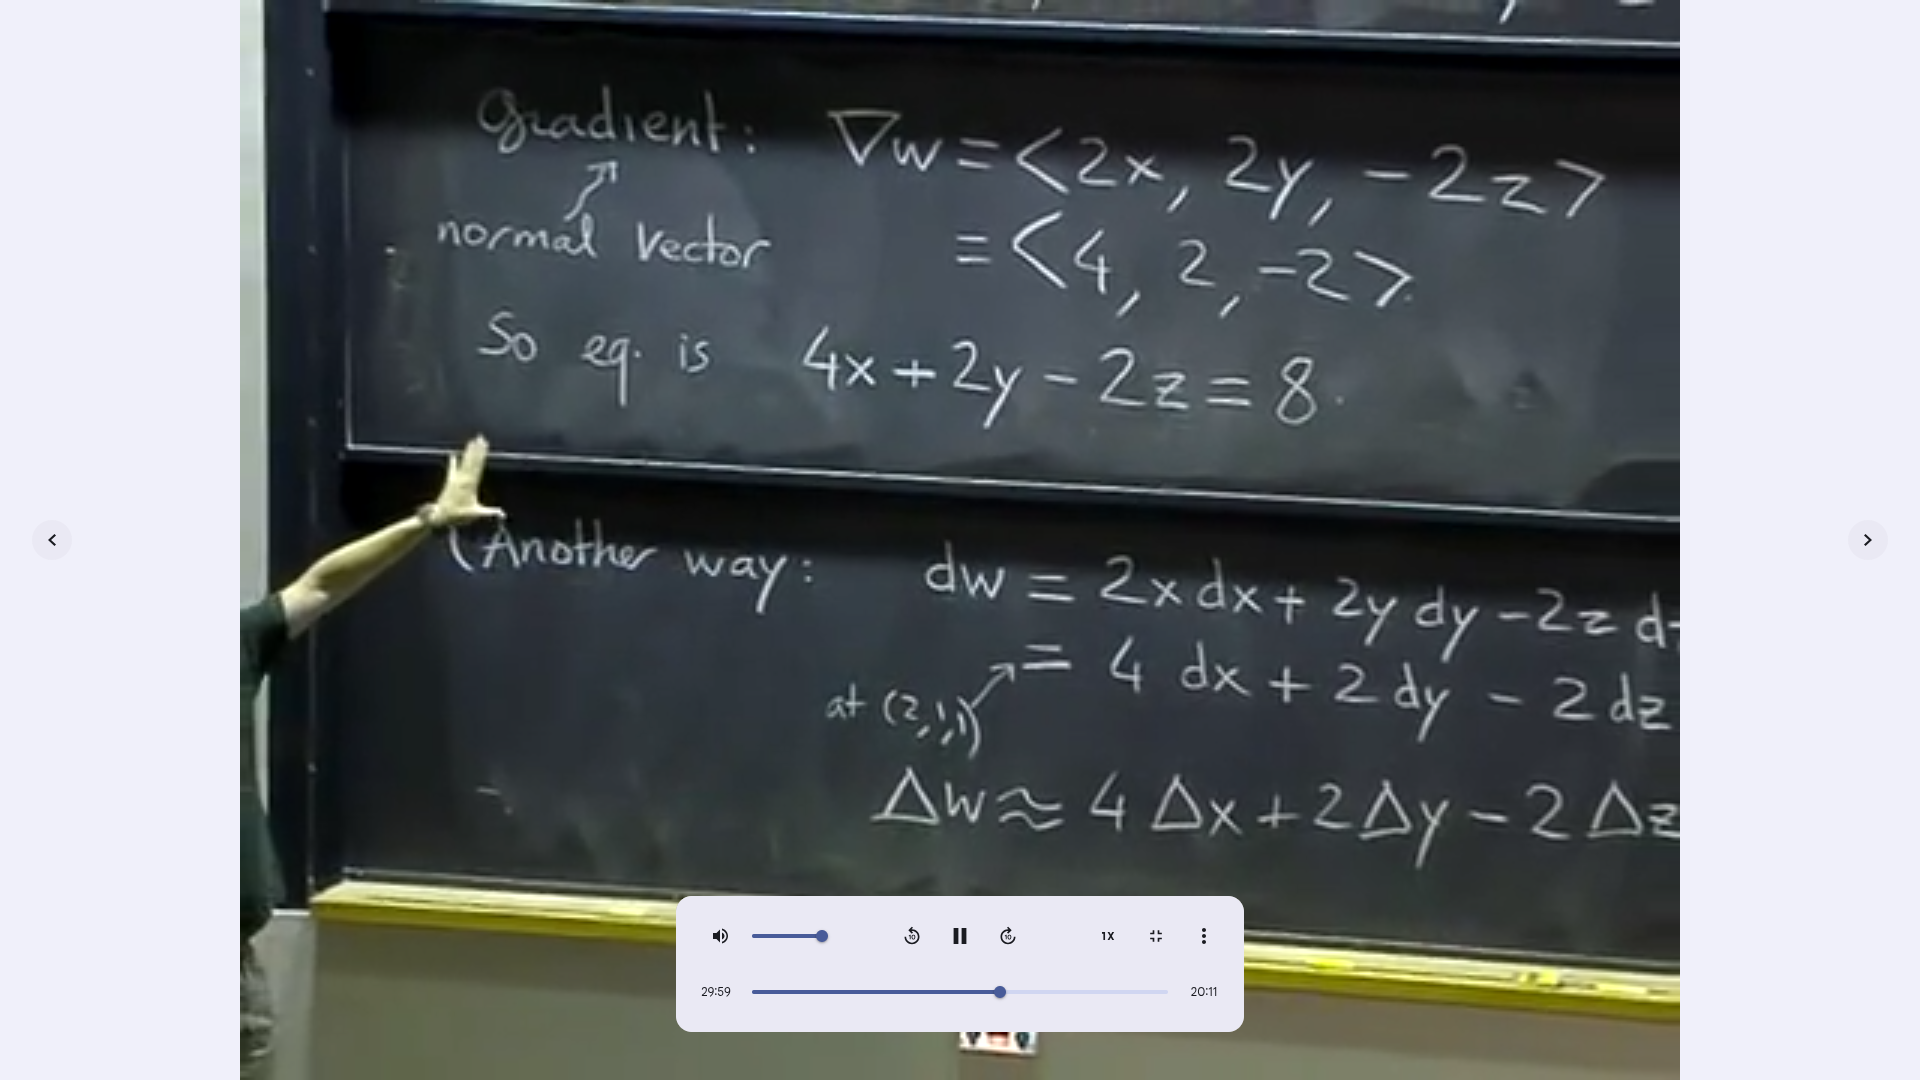 Gradient: ∇w = <2x, 2y, -2z>
normal vector = <4, 2, -2>.
So eq. is 4x + 2y - 2z = 8.
(Another way: dw = 2x dx + 2y dy - 2z
= 4 dx + 2 dy - 2 dz
at (2,1,1)
Δw ≈ 4 Δx + 2 Δy - 2 Δz
10
10
1X
29:59
20:11